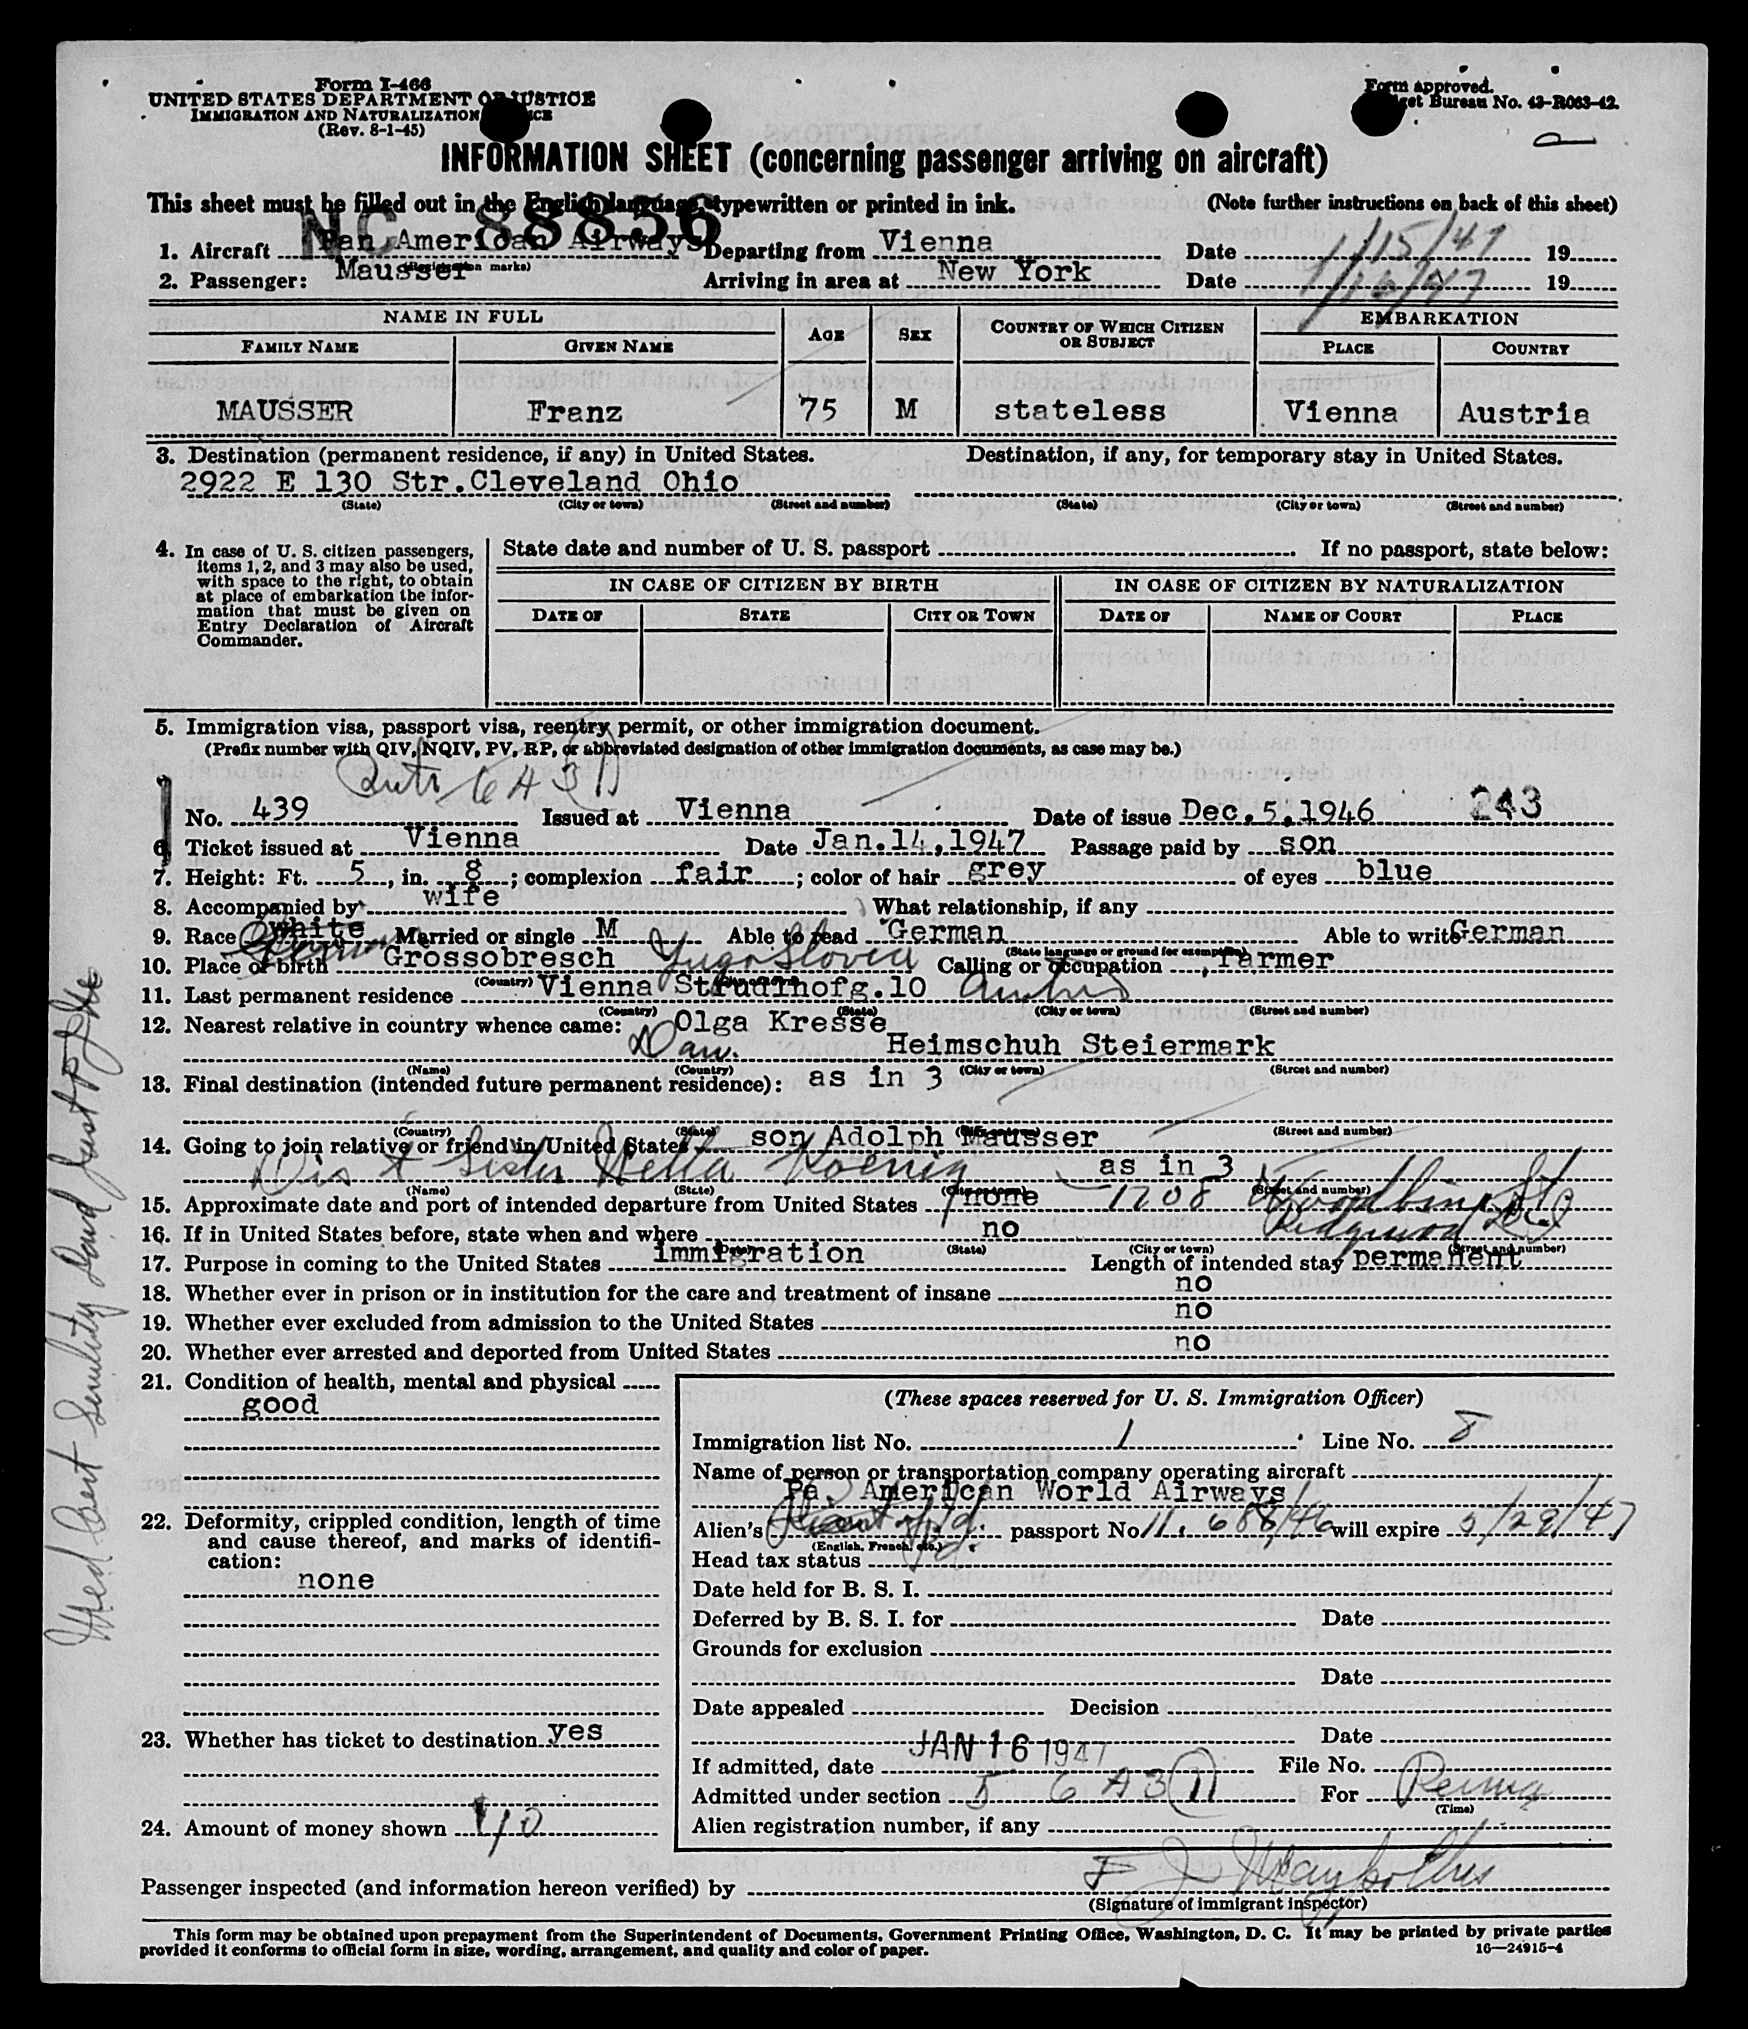 Form I-466
UNITED STATES DEPARTMENT OF JUSTICE
IMMIGRATION AND NATURALIZATION
(Rev. 8-1-45)
Form approved.
Bureau No. 43-R063-42.
INFORMATION SHEET (concerning passenger arriving on aircraft)
This sheet must be filled out in the English language, typewritten or printed in ink. (Note further instructions on back of this sheet)
NC 88856
1. Aircraft Pan American Airways Departing from Vienna Date 1/15/47 19
(Registration marks)
2. Passenger: Mausser Arriving in area at New York Date 1/16/47 19
NAME IN FULL AGE SEX COUNTRY OF WHICH CITIZEN OR SUBJECT EMBARKATION
FAMILY NAME GIVEN NAME PLACE COUNTRY
MAUSSER Franz 75 M stateless Vienna Austria
3. Destination (permanent residence, if any) in United States. Destination, if any, for temporary stay in United States.
2922 E 130 Str.Cleveland Ohio
(State) (City or town) (Street and number) (State) (City or town) (Street and number)
4. In case of U. S. citizen passengers, items 1, 2, and 3 may also be used, with space to the right, to obtain at place of embarkation the information that must be given on Entry Declaration of Aircraft Commander.
State date and number of U. S. passport If no passport, state below:
IN CASE OF CITIZEN BY BIRTH IN CASE OF CITIZEN BY NATURALIZATION
DATE OF STATE CITY OR TOWN DATE OF NAME OF COURT PLACE
5. Immigration visa, passport visa, reentry permit, or other immigration document.
(Prefix number with QIV, NQIV, PV, RP, or abbreviated designation of other immigration documents, as case may be.)
6 A 3 (1)
No. 439 Issued at Vienna Date of issue Dec.5,1946 243
6. Ticket issued at Vienna Date Jan.14,1947 Passage paid by son
7. Height: Ft. 5, in. 8; complexion fair; color of hair grey of eyes blue
8. Accompanied by wife What relationship, if any
9. Race white German Married or single M Able to read German Able to write German
(State language or ground for exemption)
10. Place of birth Grossobresch Yugo Slovia Calling or occupation farmer
(Country)
11. Last permanent residence Vienna Strudlhofg.10 Austria
(Country) (State) (City or town) (Street and number)
12. Nearest relative in country whence came: Olga Kresse
Dau. Heimschuh Steiermark
(Name) (Country) (City or town) (Street and number)
13. Final destination (intended future permanent residence): as in 3
(Country) (State) (Street and number)
14. Going to join relative or friend in United States son Adolph Mausser
Sister Hella Koenig as in 3
(Name) (State) (City or town) (Street and number)
15. Approximate date and port of intended departure from United States none 1708 Woodbine St
16. If in United States before, state when and where no Ridgewood
(State) (City or town) (Street and number)
17. Purpose in coming to the United States immigration Length of intended stay permanent
18. Whether ever in prison or in institution for the care and treatment of insane no
19. Whether ever excluded from admission to the United States no
20. Whether ever arrested and deported from United States no
21. Condition of health, mental and physical
good
22. Deformity, crippled condition, length of time and cause thereof, and marks of identification:
none
23. Whether has ticket to destination yes
24. Amount of money shown 10
(These spaces reserved for U. S. Immigration Officer)
Immigration list No. 1 Line No. 8
Name of person or transportation company operating aircraft
Pa. American World Airways
Alien's passport No. 11. 688/46 will expire 5/29/47
(English, French, etc.)
Head tax status
Date held for B. S. I.
Deferred by B. S. I. for Date
Grounds for exclusion
Date
Date appealed Decision
Date
If admitted, date JAN 16 1947 File No.
Admitted under section 5 6 A 3 (1) For Perma
(Time)
Alien registration number, if any
Passenger inspected (and information hereon verified) by
(Signature of immigrant inspector)
This form may be obtained upon prepayment from the Superintendent of Documents, Government Printing Office, Washington, D. C. It may be printed by private parties
provided it conforms to official form in size, wording, arrangement, and quality and color of paper. 16—24915-4
Med Cert Senility